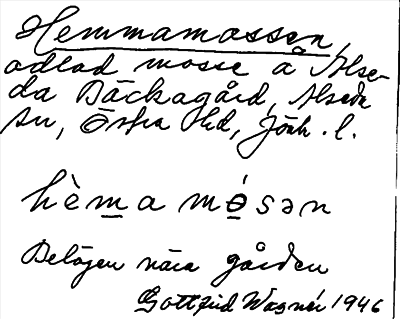 Hemmamossen,
odlad mosse å Alse-
da Bäckagård, Alseda
sn, Östra Hd, Jönk. l.
hèm̲a mó̲sən
Belägen nära gården
Gottfrid Wagnér 1946